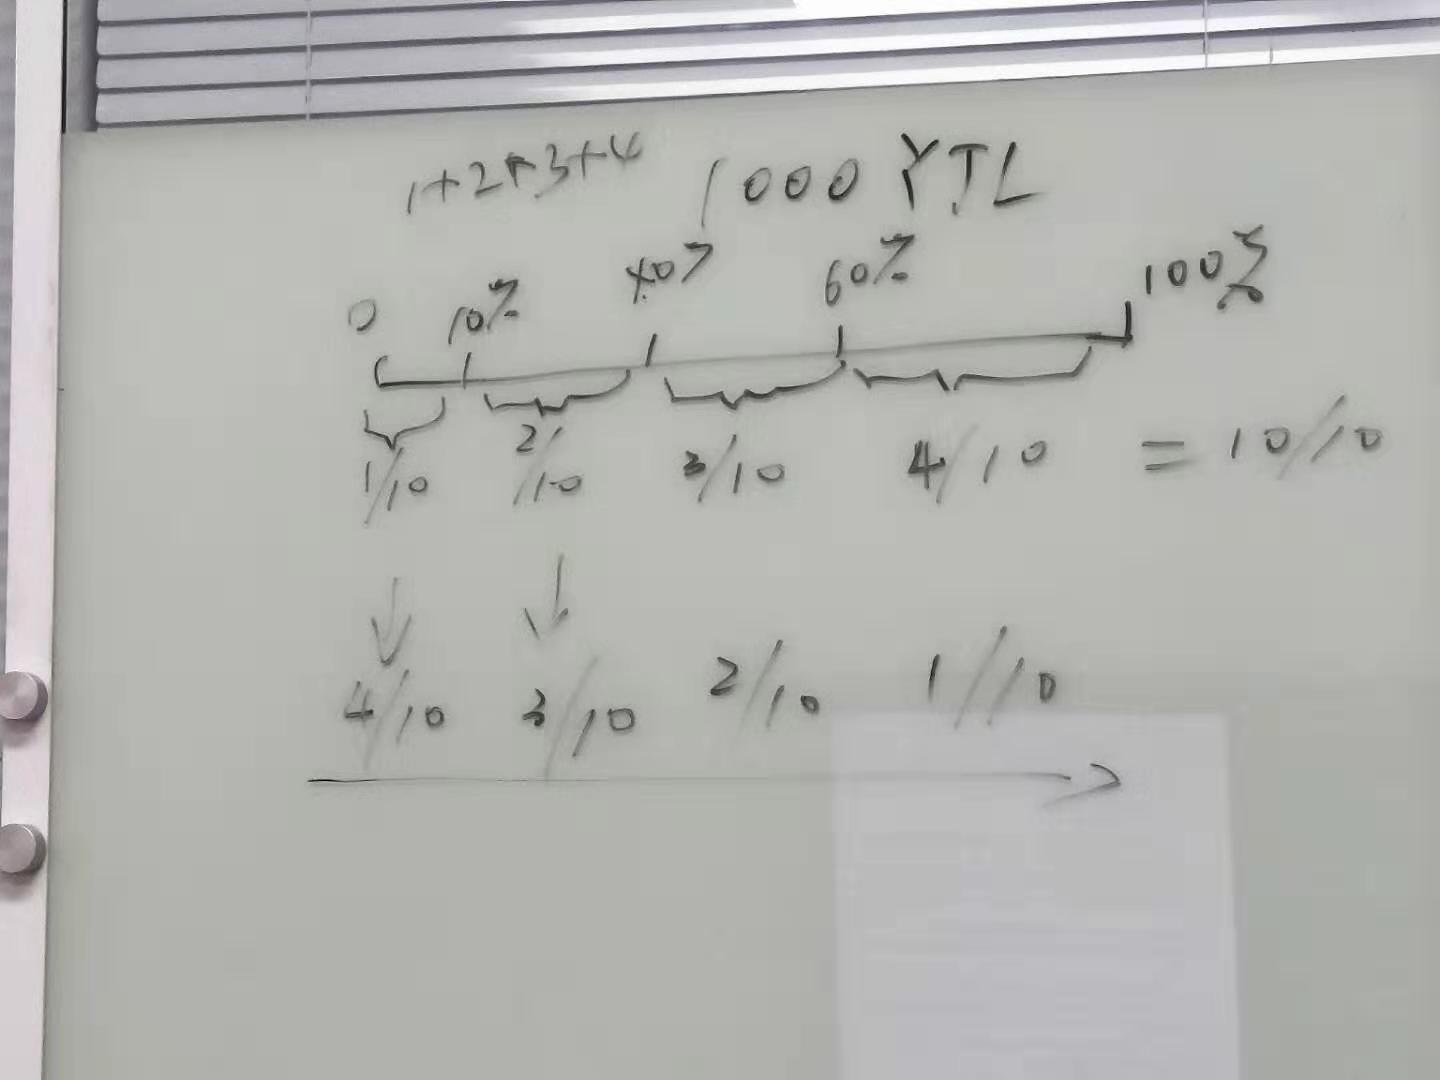 1+2+3+4 1000 YTL
0 10% 40% 60% 100%
1/10 2/10 3/10 4/10 = 10/10
4/10 3/10 2/10 1/10